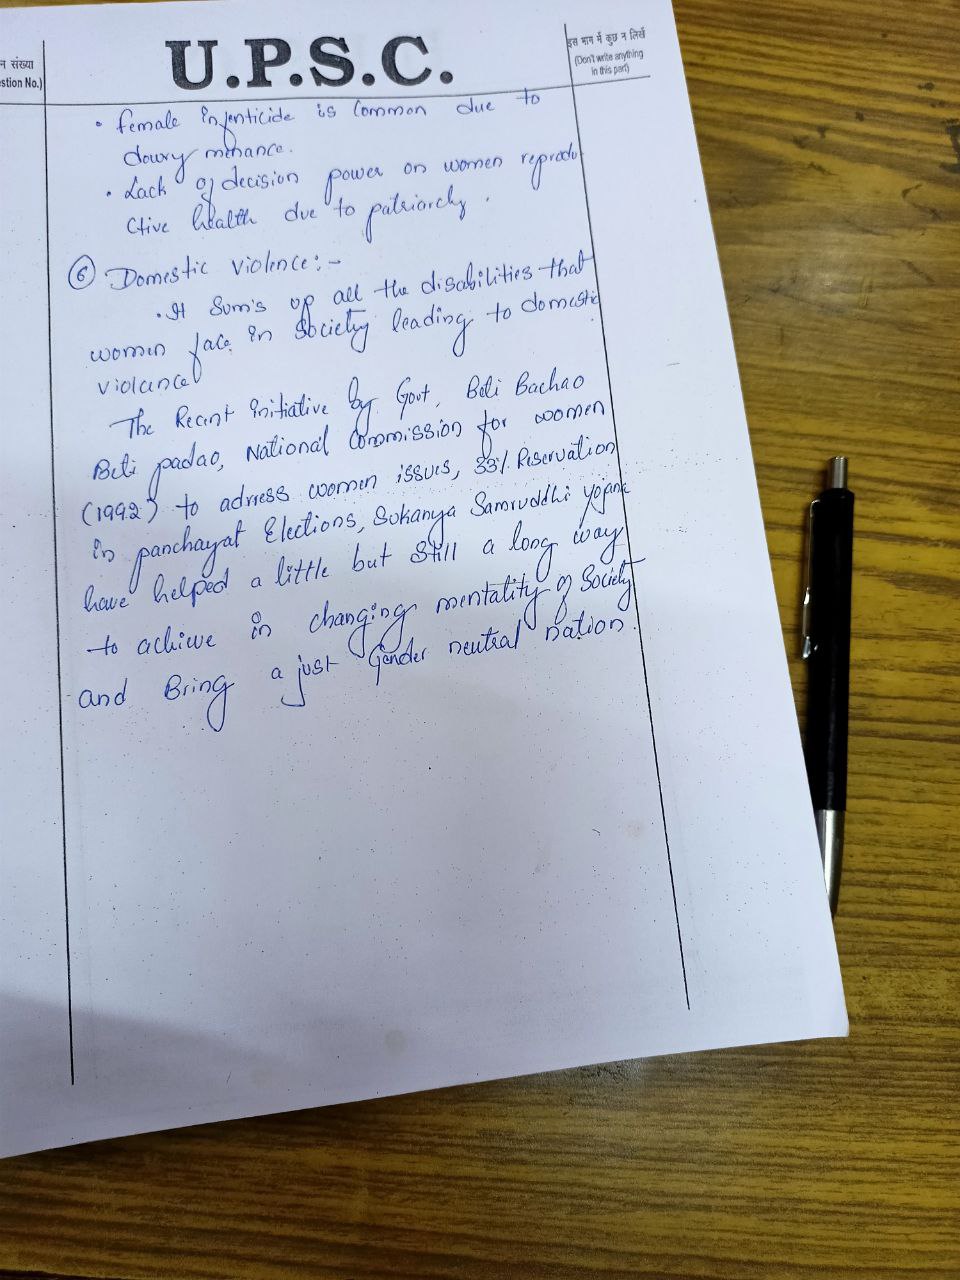 न संख्या
stion No.)
U.P.S.C.
इस भाग में कुछ न लिखें
(Don't write anything
in this part)
• female Infenticide is Common due to
dowry menance.
• Lack of decision power on women reprodu
ctive health due to patriarchy.
⑥ Domestic Violence:-
• It Sum's up all the disabilities that
women face in Society leading to domestic
violance
The Recent initiative by Govt, Beti Bachao
Beti padao, National Commission for women
(1992) to adress women issues, 33% Reservation
in panchayat Elections, Sukanya Samruddhi yojana
have helped a little but still a long way
to achive in changing mentality of Society
and Bring a just Gender neutral nation.